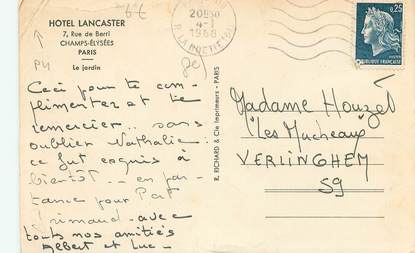 HOTEL LANCASTER
7, Rue de Berri
CHAMPS-ÉLYSÉES
PARIS
Le jardin
Ceci pour te com-
plimenter et te
remercier... sans
oublier Nathalie.
ce fut exquis à
bientôt -- en par-
tance pour Port
Grimaud - avec
touts nos amitiés
Albert et Luc -
R. RICHARD & Cie Imprimeurs - PARIS
20H30
4-
1968
R. LA BOETIE
0,25
REPUBLIQUE FRANCAISE
Madame Houzet
"Les Mucheaux"
VERLINGHEM
59